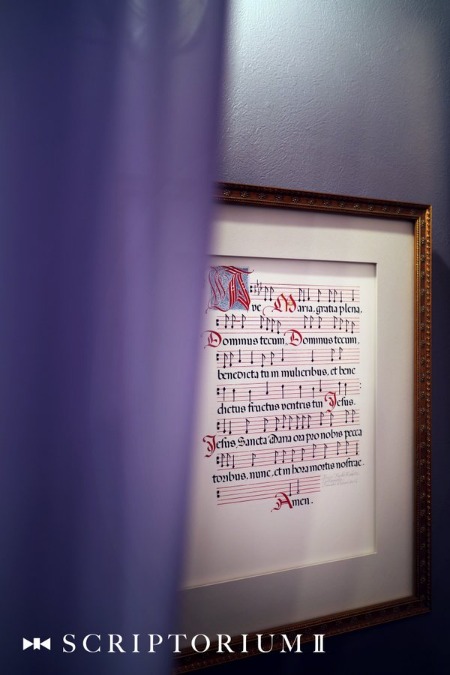 Ave Maria, gratia plena,
Dominus tecum, Dominus tecum,
benedicta tu in mulieribus, et bene
dictus fructus ventris tui Jesus.
Jesus, Sancta Maria ora pro nobis pecca
toribus, nunc, et in hora mortis nostrae.
Amen.
SCRIPTORIUM II